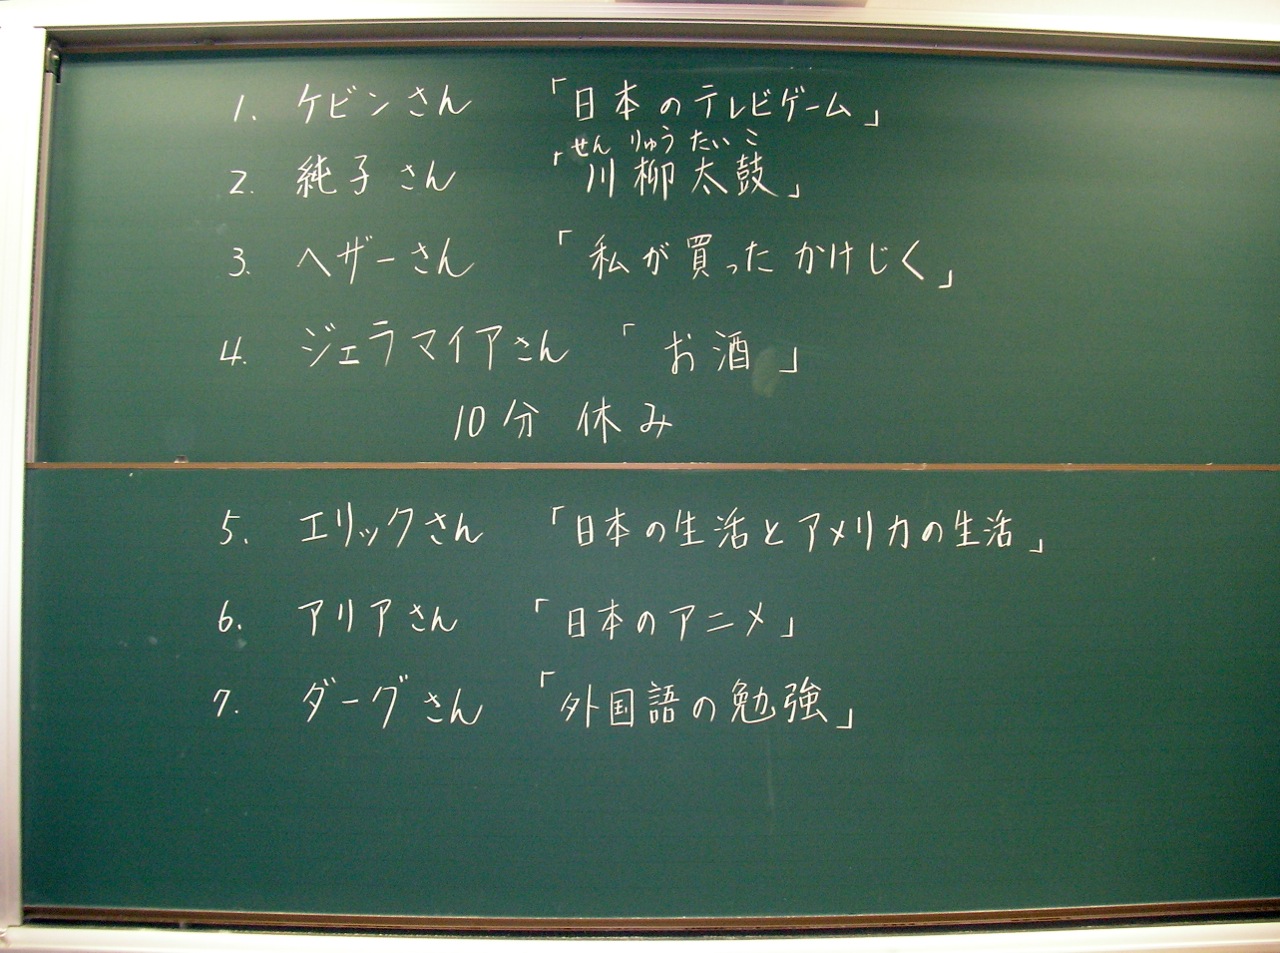 1. ケビンさん 「日本のテレビゲーム」
せん りゅう たい こ
2. 純子さん 「川柳太鼓」
3. ヘザーさん 「私が買ったかけじく」
4. ジェラマイアさん 「お酒」
10分 休み
5. エリックさん 「日本の生活とアメリカの生活」
6. アリアさん 「日本のアニメ」
7. ダーグさん 「外国語の勉強」